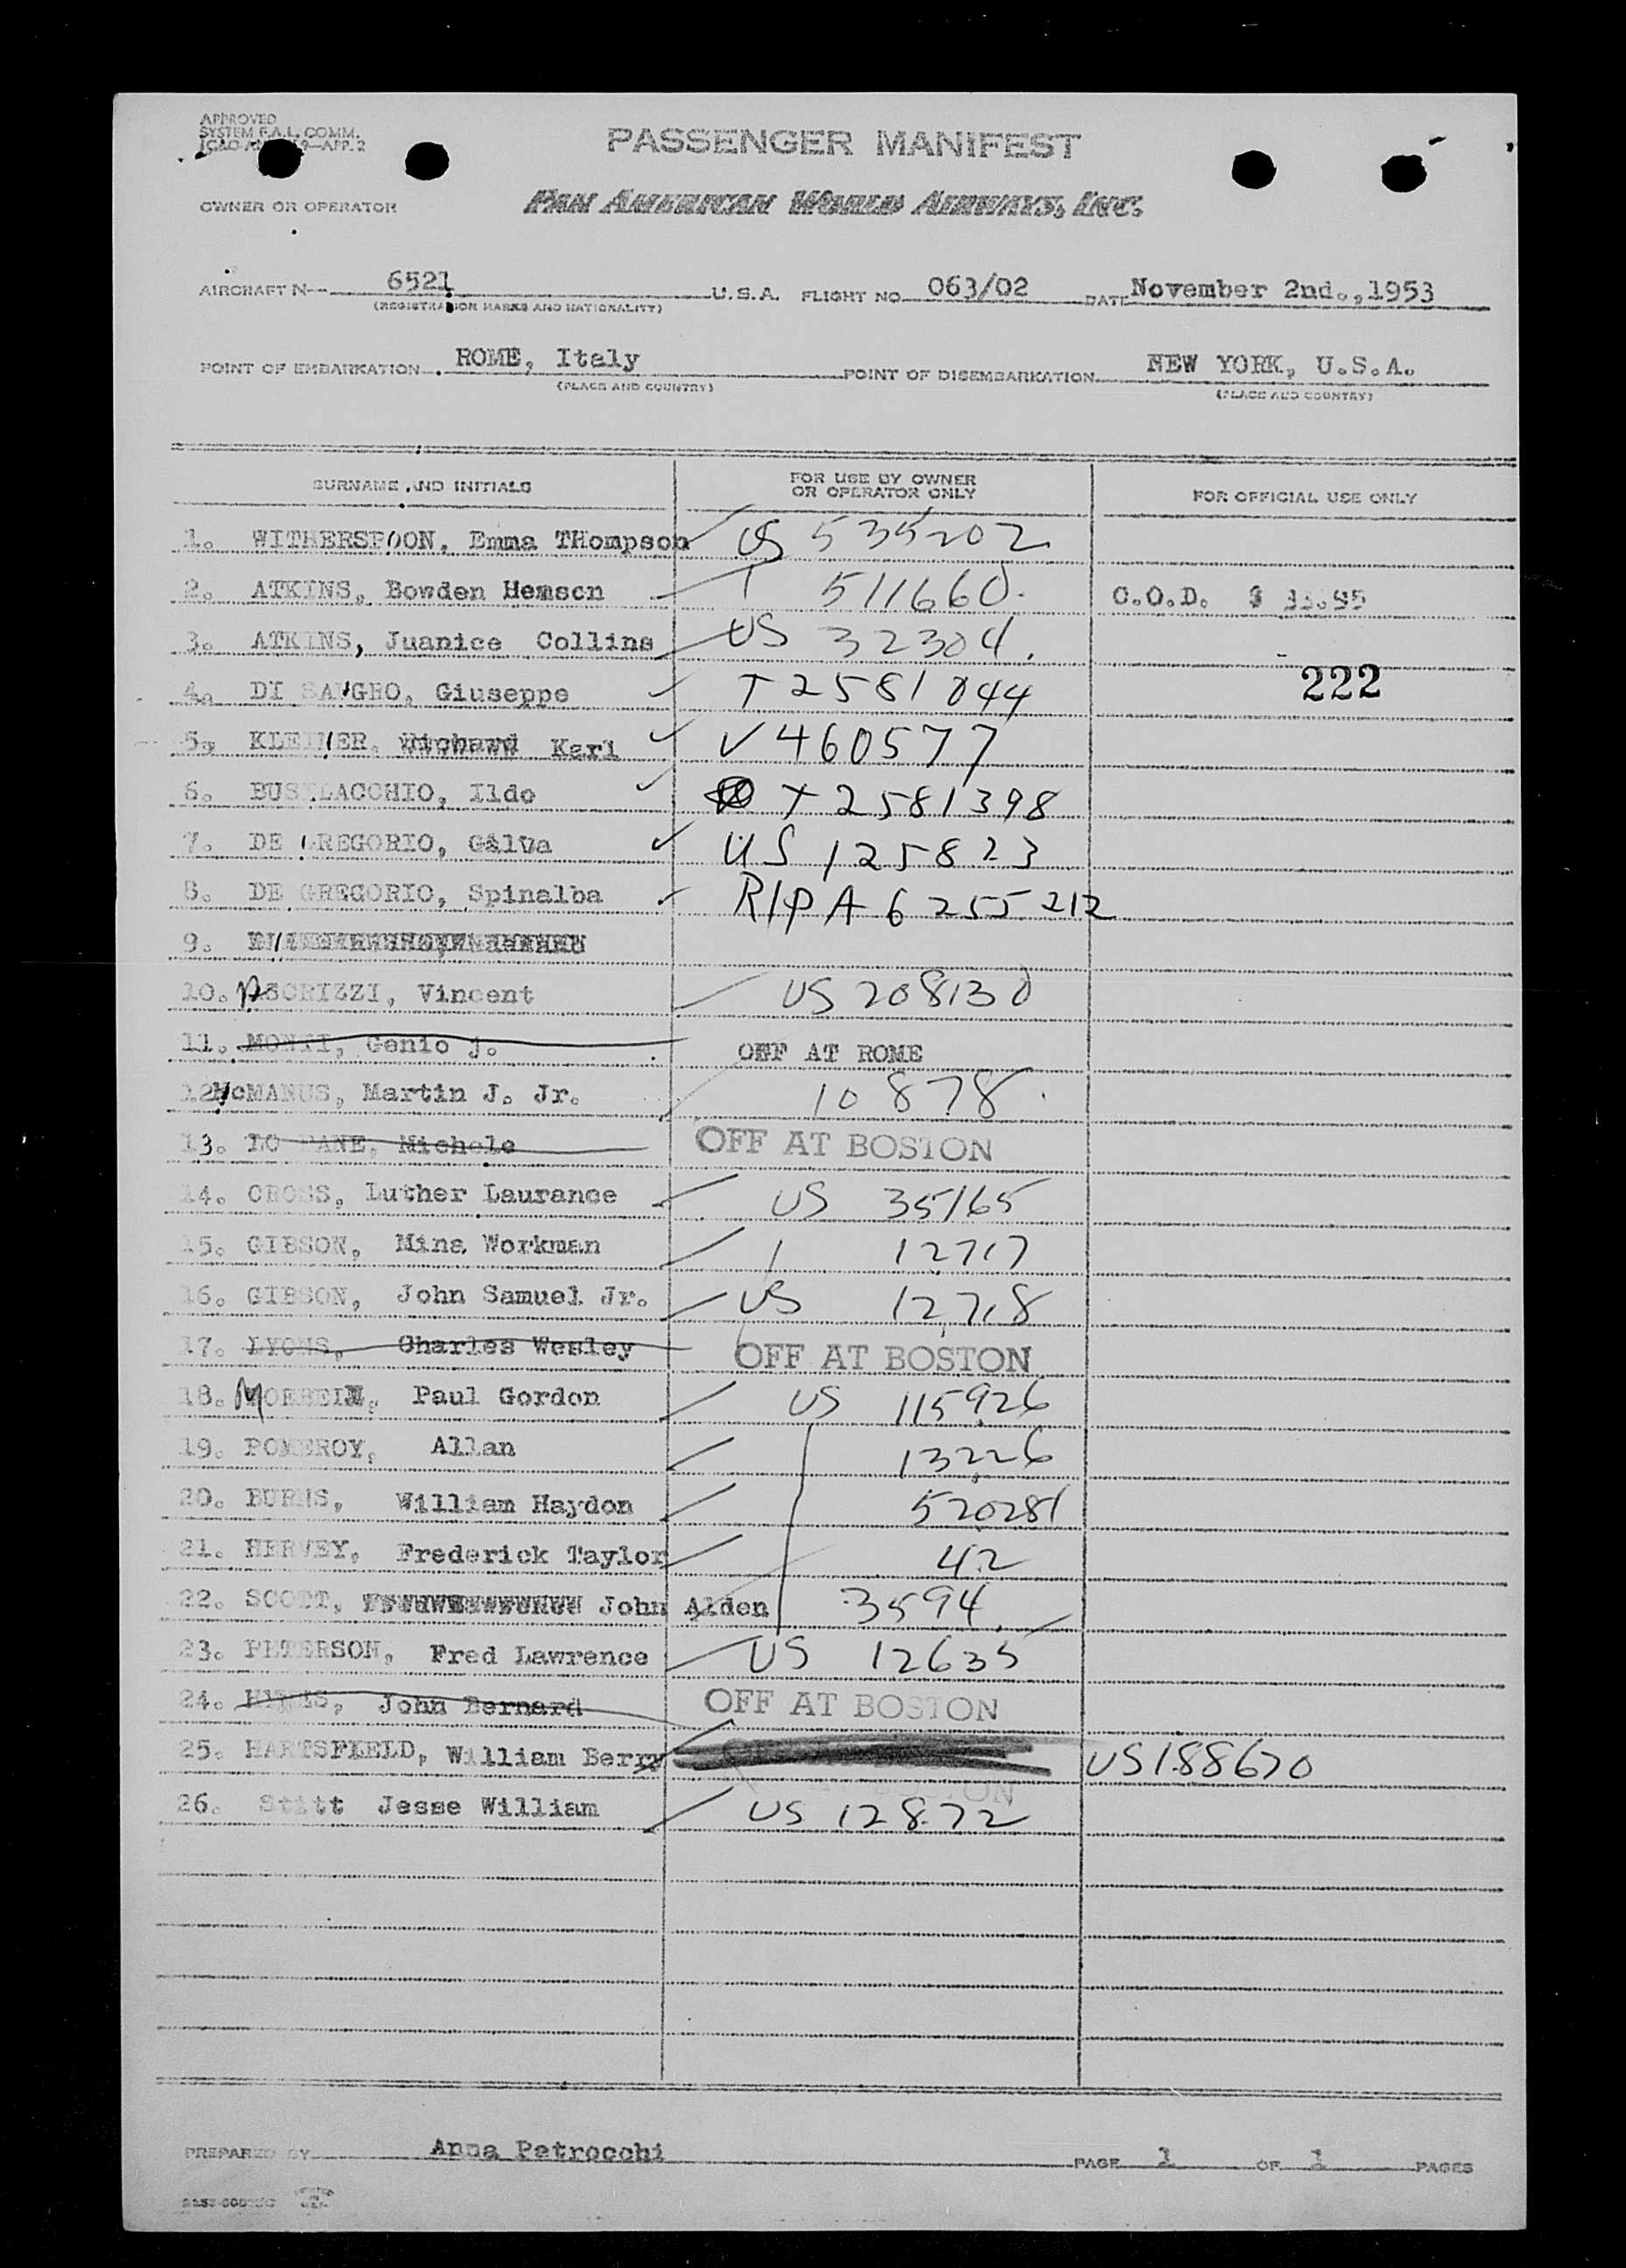 APPROVED
SYSTEM F.A.L. COMM.
PASSENGER MANIFEST
OWNER OR OPERATOR
PAN AMERICAN WORLD AIRWAYS, INC.
AIRCRAFT N-- 6521 U.S.A. FLIGHT NO. 063/02 DATE November 2nd.,1953
(REGISTRATION MARKS AND NATIONALITY)
POINT OF EMBARKATION ROME, Italy POINT OF DISEMBARKATION NEW YORK, U.S.A.
(PLACE AND COUNTRY) (PLACE AND COUNTRY)
SURNAME AND INITIALS FOR USE BY OWNER OR OPERATOR ONLY FOR OFFICIAL USE ONLY
1. WITHERSPOON, Emma THompson US 535202
2. ATKINS, Bowden 511660. C.O.D. $
3. ATKINS, Juanice Collins US 32304.
222
4. DI SANGRO, Giuseppe T 2581044
5. Karl V 460577
6. Ildo T 2581398
7. DE GREGORIO, US 125823
8. DE GREGORIO, Spinalba A 6255212
9.
10. Vincent US 208130
11. MONTI, Genio j. OFF AT ROME
12 McMANUS, Martin J. Jr. 10878
13. Michele OFF AT BOSTON
14. CROSS, Luther Laurance US 35165
15. GIBSON, Mina Workman 12717
16. GIBSON, John Samuel Jr. US 12718
17. LYONS, Charles Wesley OFF AT BOSTON
18. Paul Gordon US 115926
19. POMEROY, Allan 13226
20. BURNS, William Haydon 520281
21. HERVEY, Frederick Taylor 42
22. SCOTT, John Alden 3594
23. PETERSON, Fred Lawrence US 12635
24. HYNES, John Bernard OFF AT BOSTON
25. HARTSFIELD, William Berry US 188670
26. Stitt Jesse William US 12872
PREPARED BY Anna Petrocchi PAGE 1 OF 1 PAGES